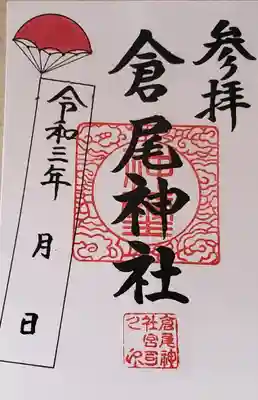 参拝
倉尾神社
令和三年
月
日
倉尾神
社宮司
之印